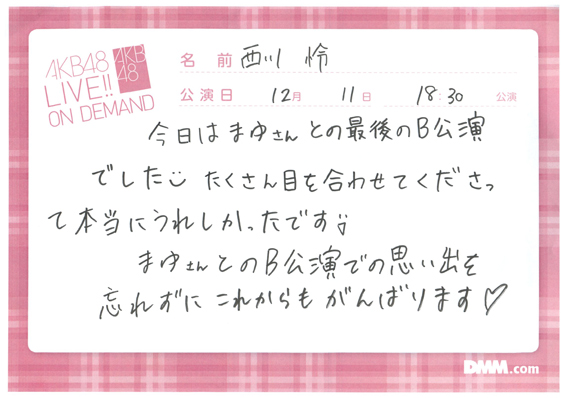 AKB48
LIVE!!
ON DEMAND
AKB
48
名前 西川 怜
公演日 12月 11日 18:30 公演
今日はまゆさんとの最後のB公演
でした たくさん目を合わせてくださっ
て本当にうれしかったです
まゆさんとのB公演での思い出を
忘れずにこれからもがんばります♡
DMM.com